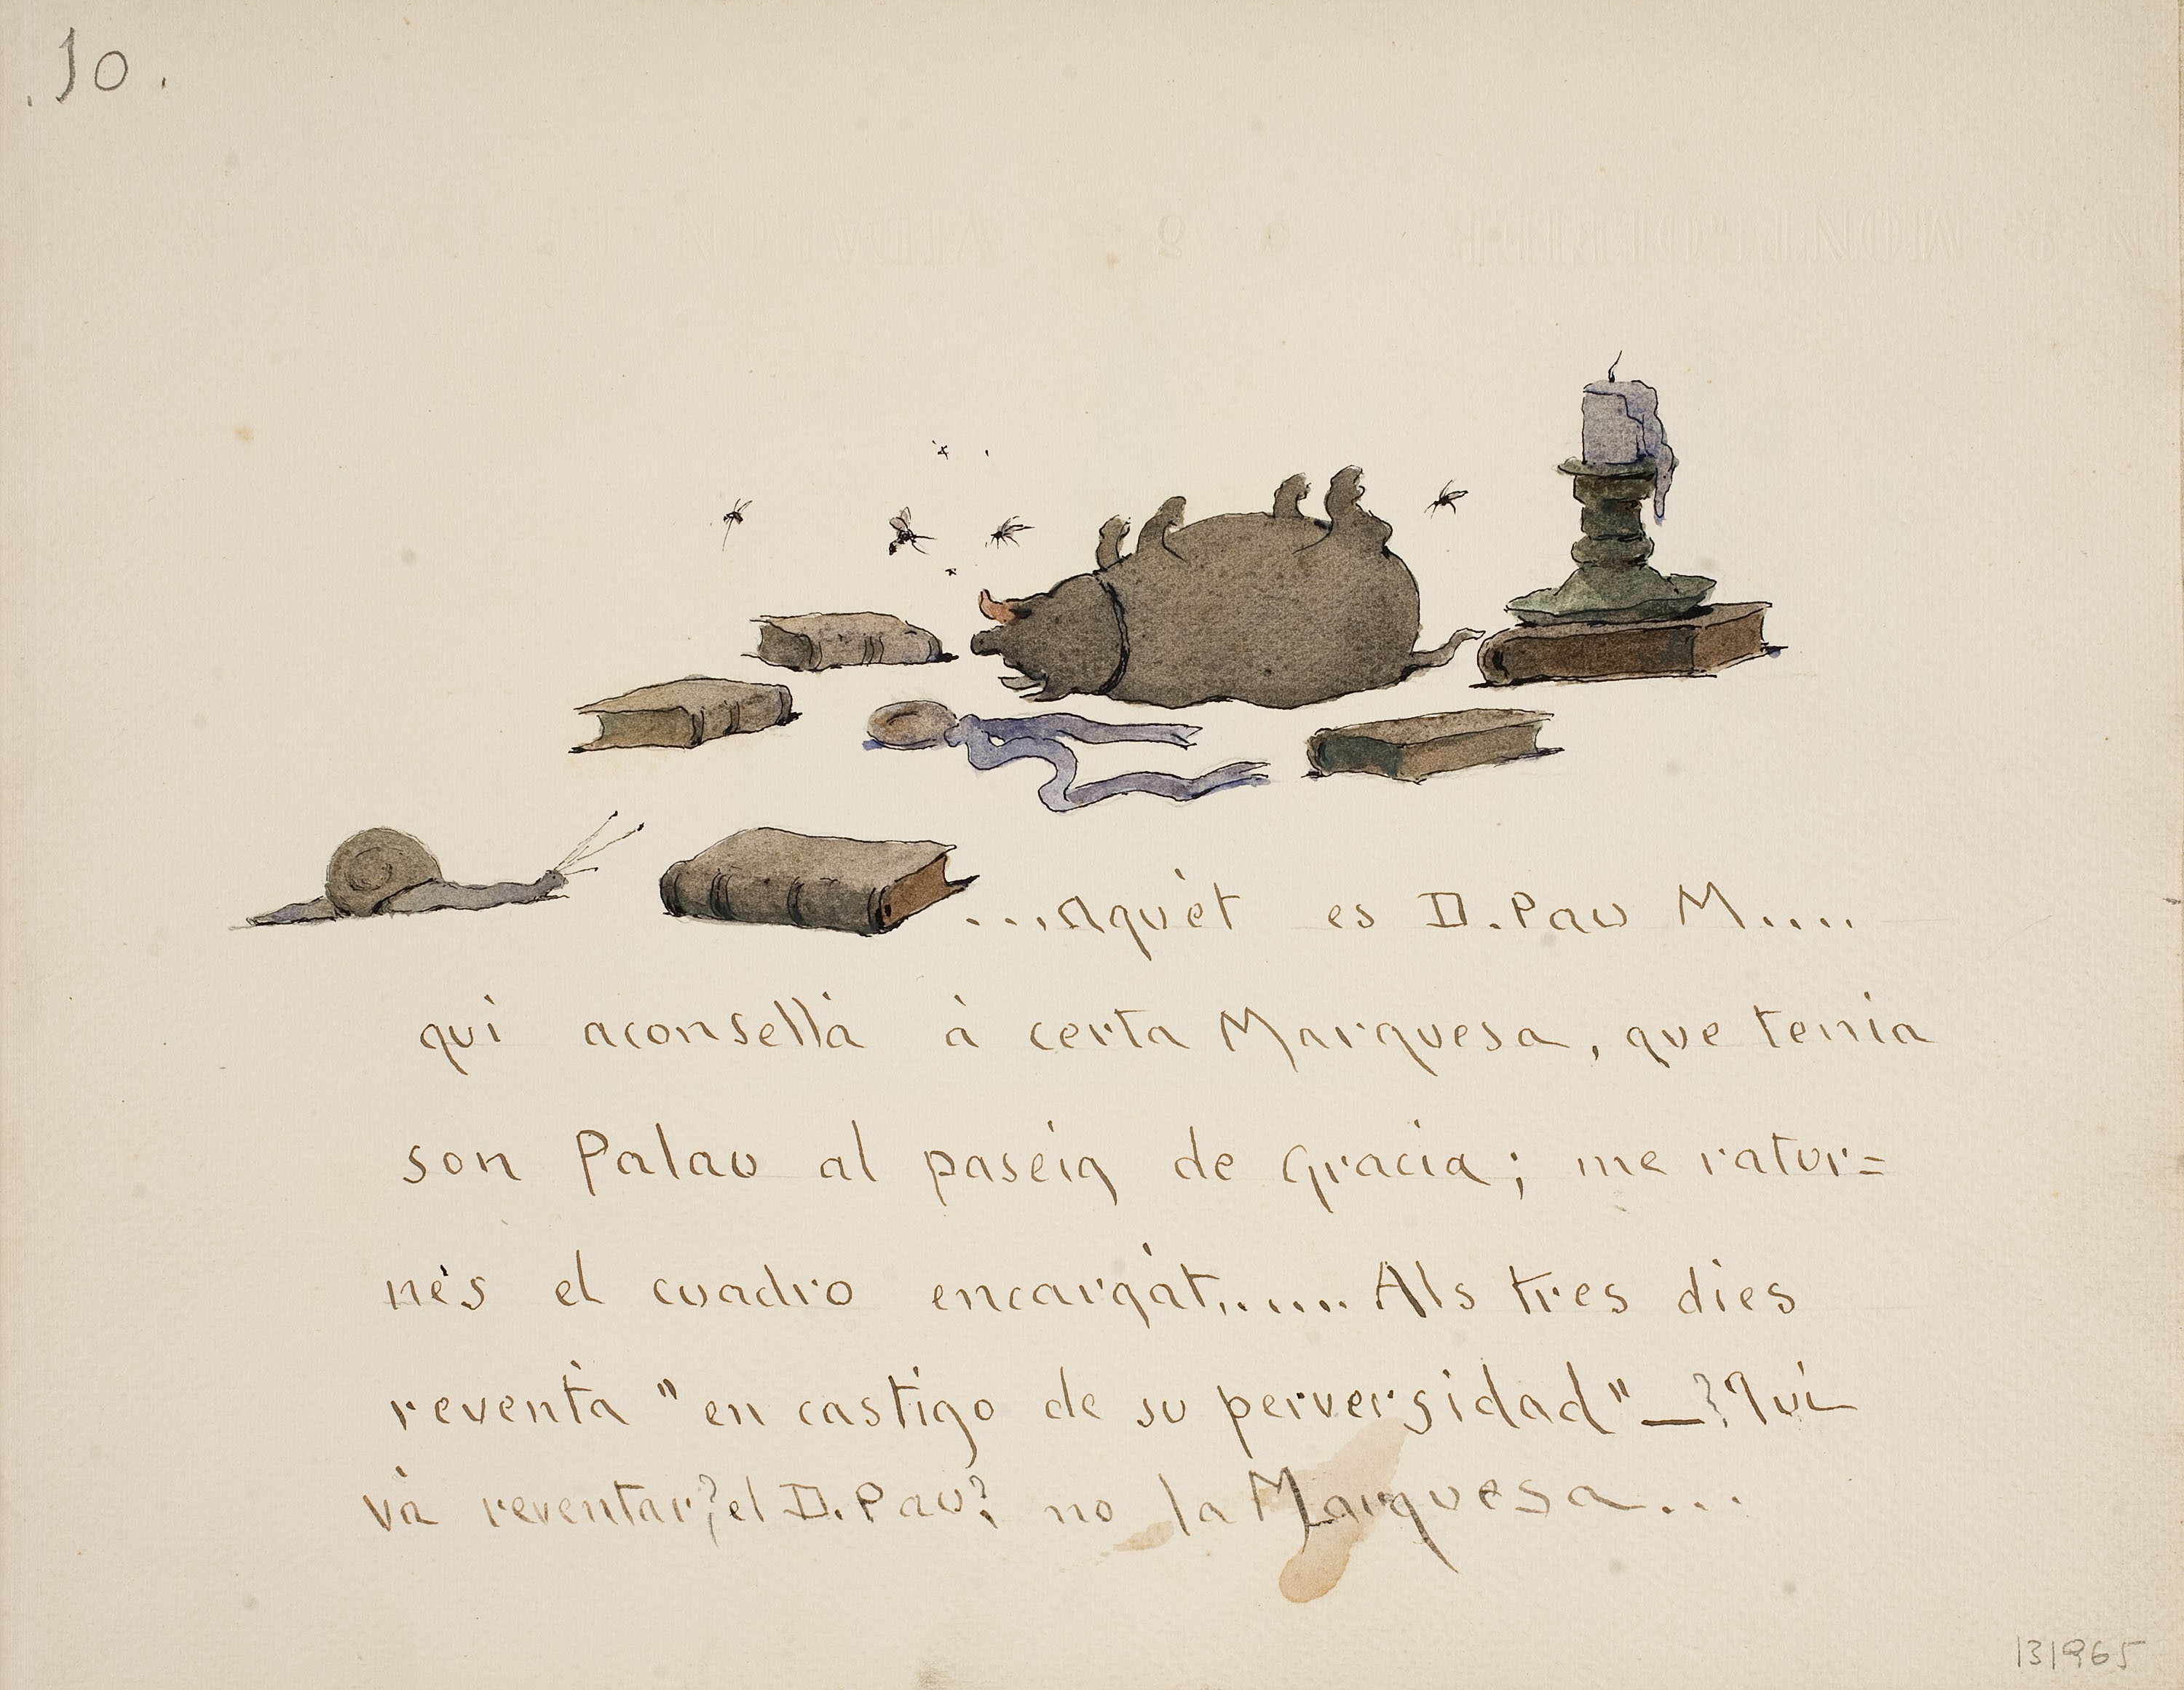 .10.
...Aquèt es D. Pau M....
qui aconsellà à certa Marquesa, que tenia
son Palau al paseig de Gracia; me ratur=
nès el cuadro encargát....... Als tres dies
reventà "en castigo de su perversidad"—?Qui
và reventar? el D. Pau? no la Marquesa...
131965